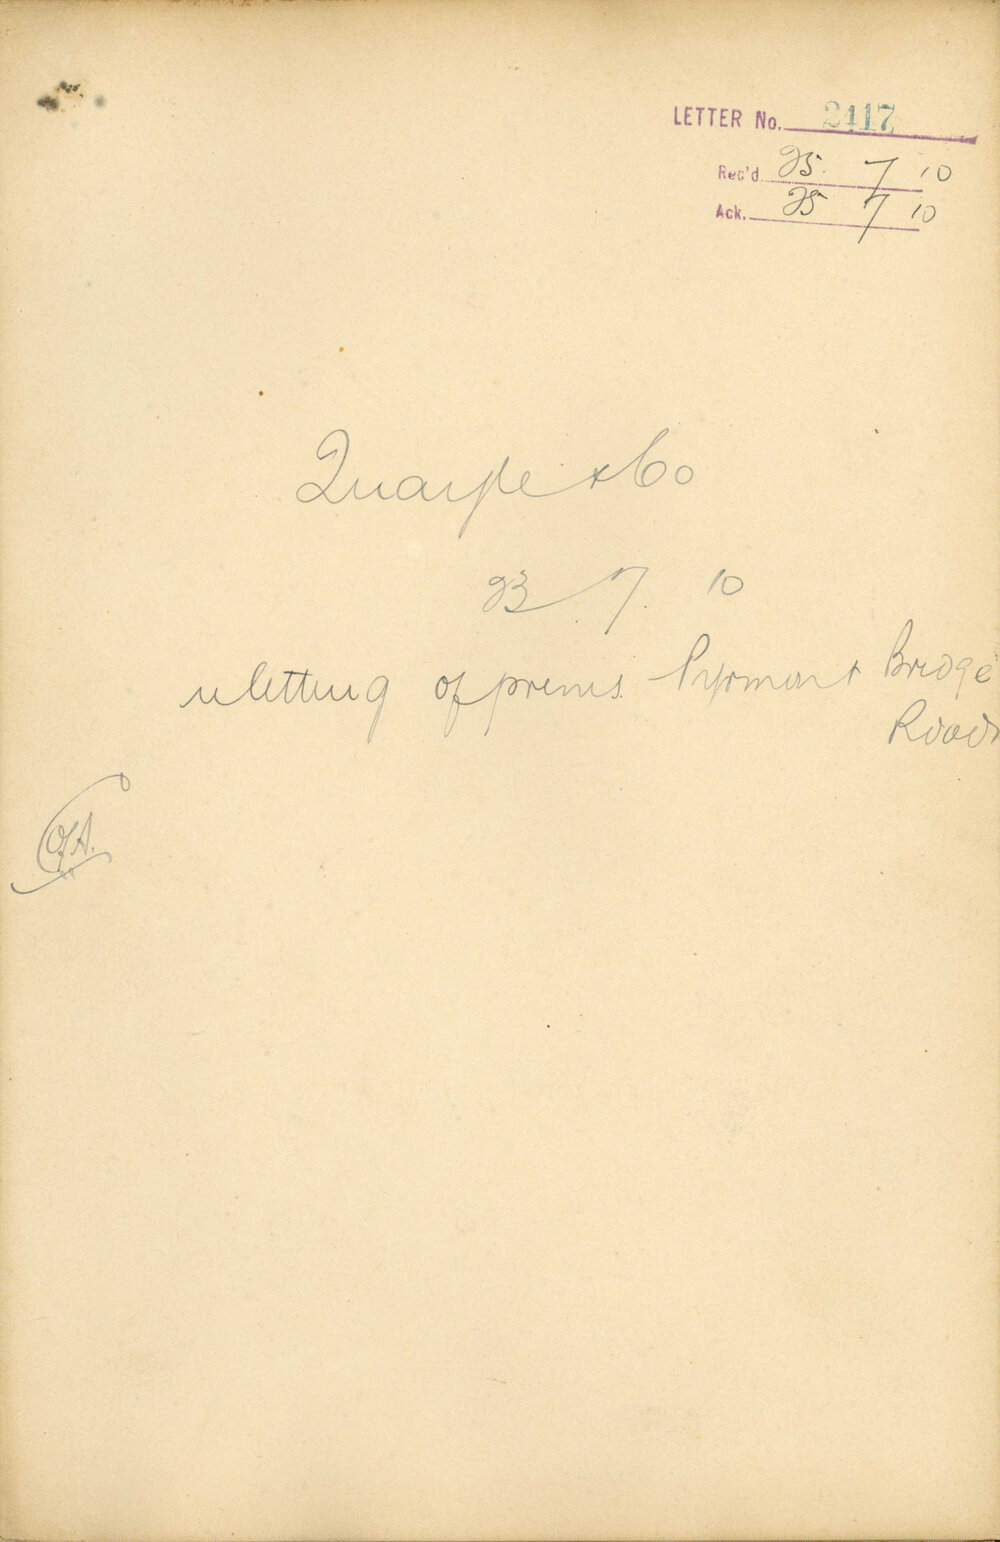 LETTER No. 2117
Rec'd 25. 7 10
Ack. 25 7 10
Quaife & Co
23. 7. 10
re letting of prems. Pyrmont Bridge
Road